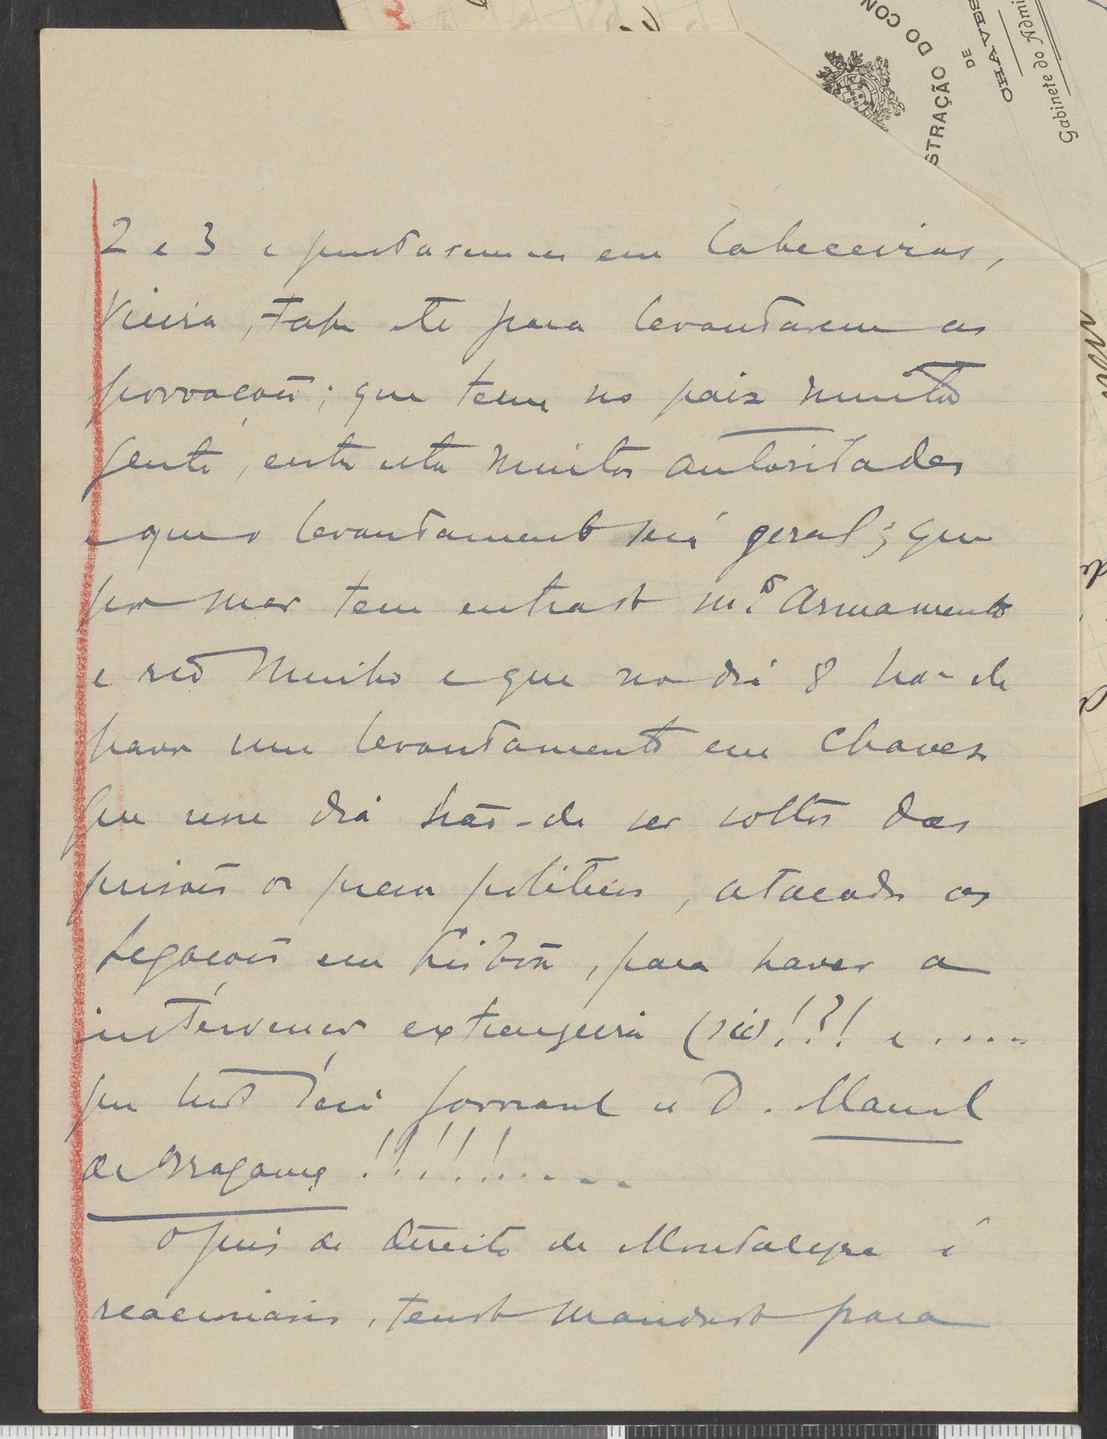 STRAÇÃO DO CON
DE
CHAVES
Gabinete do Admi
2 e 3 e juntarem-se em Cabeceiras,
Vieira, etc para levantarem as
povoações; que tem no paiz muita
gente, entre esta muitas autoridades
e que o levantamento será geral; que
por mar tem entrado m.to armamento
e pelo Minho e que no dia 8 ha-de
haver um levantamento em Chaves
que nesse dia hão-de ser soltos das
prisões os presos politicos, atacadas as
Legações em Lisboa, para haver a
intervenção extrangeira (sic)!?! e .....
que tudo será formado u D. Manuel
de Bragança !!!!!!....
O juiz de direito de Montalegre é
reacionario, tendo mandado para